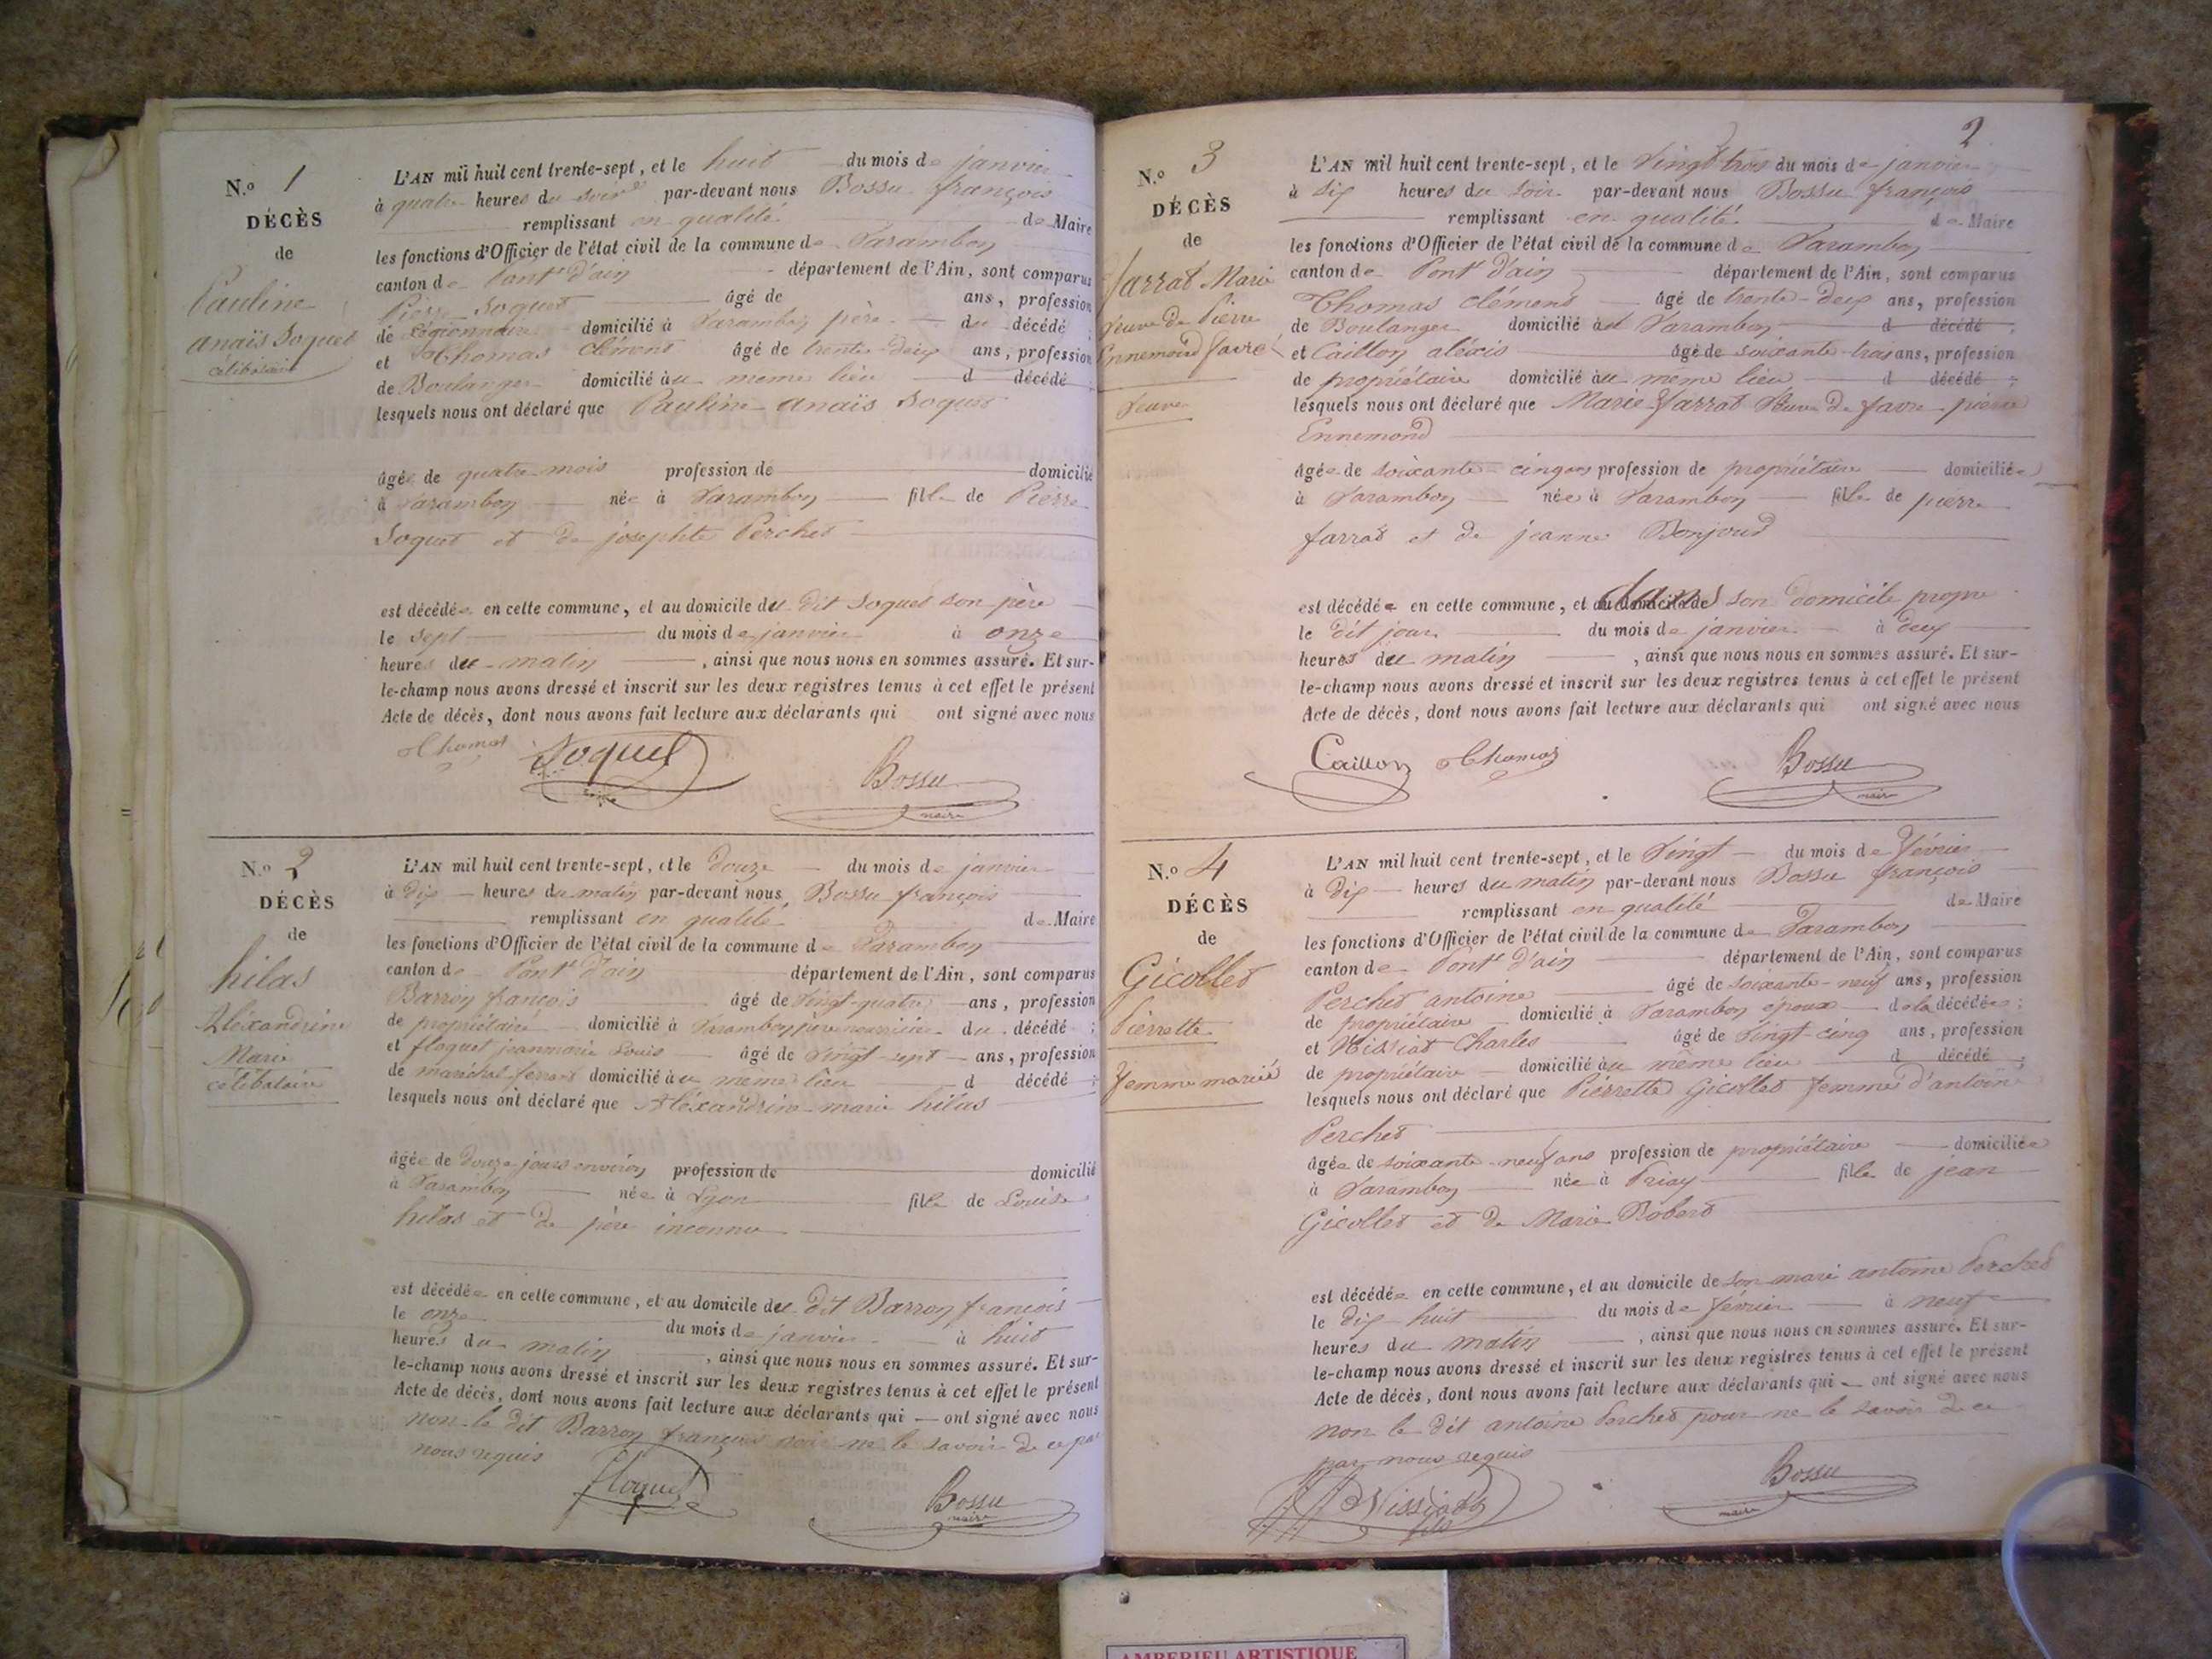 N.o 1
DÉCÈS
de
Pauline
anaïs Soquet
célibataire
L'AN mil huit cent trente-sept, et le huit du mois de janvier
à quatre heures du soir par-devant nous Bossu françois
remplissant en qualité de Maire
les fonctions d'Officier de l'état civil de la commune de Varambon
canton de Pont d'ain département de l'Ain, sont comparus
Pierre Soquet âgé de ans, profession
de Légionnaire domicilié à Varambon père du décédé ;
et Thomas clément âgé de trente-deux ans, profession
de Boulanger domicilié au même lieu d décédé ;
lesquels nous ont déclaré que Pauline anaïs Soquet
âgée de quatre mois profession de domicilié
à Varambon née à Varambon fille de Pierre
Soquet et de josephte Perchet
est décédée en cette commune, et au domicile du dit Soquet son père
le sept du mois de janvier à onze
heures du matin, ainsi que nous nous en sommes assuré. Et sur-
le-champ nous avons dressé et inscrit sur les deux registres tenus à cet effet le présent
Acte de décès, dont nous avons fait lecture aux déclarants qui ont signé avec nous
Thomas Soquet Bossu
maire
N.o 2
DÉCÈS
de
hilas
Aléxandrine
Marie
célibataire
L'AN mil huit cent trente-sept, et le douze du mois de janvier
à dix heures du matin par-devant nous, Bossu françois
remplissant en qualité de Maire
les fonctions d'Officier de l'état civil de la commune de Varambon
canton de Pont d'ain département de l'Ain, sont comparus
Barron françois âgé de vingt-quatre ans, profession
de propriétaire domicilié à Varambon père nourricier du décédé ;
et floquet jeanmarie Louis âgé de vingt-sept ans, profession
de maréchal ferrant domicilié au même lieu d décédé ;
lesquels nous ont déclaré que Aléxandrine marie hilas
âgée de douze jours environ profession de domicilié
à Varambon née à Lyon fille de Louise
hilas et de père inconnu
est décédée en cette commune, et au domicile du dit Barron françois
le onze du mois de janvier à huit
heures du matin, ainsi que nous nous en sommes assuré. Et sur-
le-champ nous avons dressé et inscrit sur les deux registres tenus à cet effet le présent
Acte de décès, dont nous avons fait lecture aux déclarants qui ont signé avec nous
non le dit Barron françois pour ne le savoir de ce par
nous requis
floquet Bossu
maire
2
N.o 3
DÉCÈS
de
farrat Marie
veuve de Pierre
Ennemond favre
veuve
L'AN mil huit cent trente-sept, et le vingt trois du mois de janvier
à six heures du soir par-devant nous Bossu françois
remplissant en qualité de Maire
les fonctions d'Officier de l'état civil de la commune de Varambon
canton de Pont d'ain département de l'Ain, sont comparus
Thomas clément âgé de trente-deux ans, profession
de Boulanger domicilié à Varambon d décédé ;
et Caillon aléxis âgé de soixante-trois ans, profession
de propriétaire domicilié au même lieu d décédé ;
lesquels nous ont déclaré que Marie farrat veuve de favre pierre
Ennemond
âgée de soixante-cinq ans profession de propriétaire domiciliée
à Varambon née à Varambon fille de pierre
farrat et de jeanne Bonjour
est décédée en cette commune, et dans son domicile propre
le dit jour du mois de janvier à deux
heures du matin, ainsi que nous nous en sommes assuré. Et sur-
le-champ nous avons dressé et inscrit sur les deux registres tenus à cet effet le présent
Acte de décès, dont nous avons fait lecture aux déclarants qui ont signé avec nous
Caillon Thomas Bossu
maire
N.o 4
DÉCÈS
de
Gicollet
Pierrette
femme mariée
L'AN mil huit cent trente-sept, et le vingt du mois de février
à dix heures du matin par-devant nous Bossu françois
remplissant en qualité de Maire
les fonctions d'Officier de l'état civil de la commune de Varambon
canton de Pont d'ain département de l'Ain, sont comparus
Perchet antoine âgé de soixante-neuf ans, profession
de propriétaire domicilié à Varambon époux de la décédée ;
et Nissiat Charles âgé de vingt-cinq ans, profession
de propriétaire domicilié au même lieu d décédé ;
lesquels nous ont déclaré que Piérrette Gicollet femme d'antoine
Perchet
âgée de soixante-neuf ans profession de propriétaire domiciliée
à Varambon née à Priay fille de jean
Gicollet et de Marie Robert
est décédée en cette commune, et au domicile de son mari antoine Perchet
le dix huit du mois de février à neuf
heures du matin, ainsi que nous nous en sommes assuré. Et sur-
le-champ nous avons dressé et inscrit sur les deux registres tenus à cet effet le présent
Acte de décès, dont nous avons fait lecture aux déclarants qui ont signé avec nous
non le dit antoine Perchet pour ne le savoir de ce
par nous requis
Nissiat fils Bossu
maire
AMBERIEU ARTISTIQUE